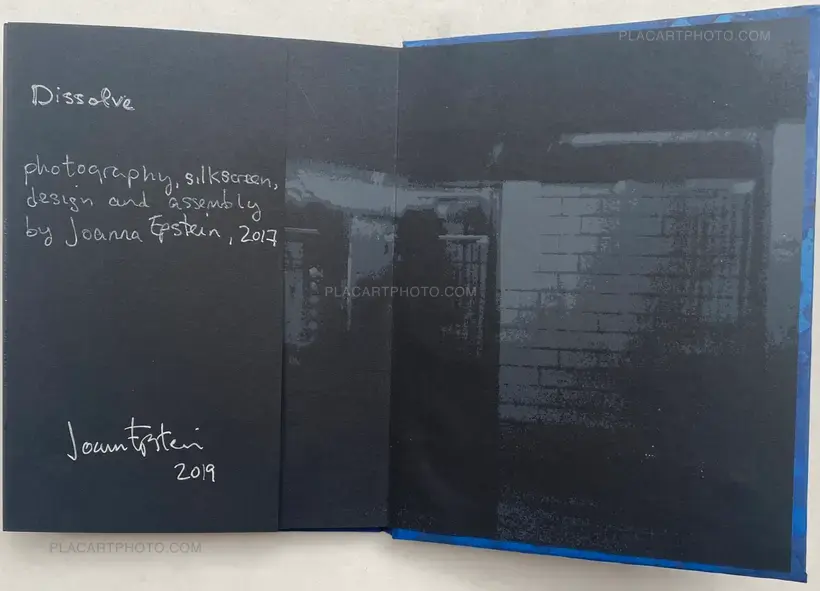 PLACARTPHOTO.COM
Dissolve
photography, silkscreen,
design and assembly
by Joanna Epstein, 2017
PLACARTPHOTO.COM
Joann Epstein
2019
PLACARTPHOTO.COM